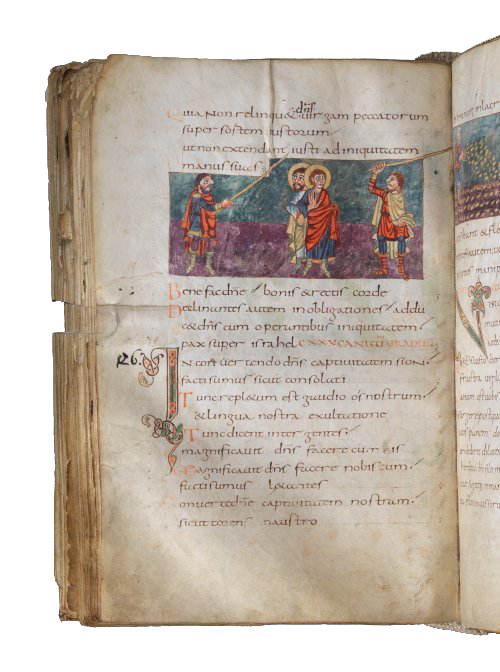 Quia non relinquet dns virgam peccatorum
super sortem iustorum
ut non extendant iusti ad iniquitatem
manus suas
Benefac dne bonis & rectis corde
Declinantes autem in obligationes addu
c& dns cum operantibus iniquitatem
pax super israhel CXXV CANTICU GRADUU
126.
In convertendo dns captivitatem sion
facti sumus sicut consolati
Tunc repleum est gaudio os nostrum
& lingua nostra exultatione
Tunc dicent inter gentes
magnificavit dns facere cum eis
Magnificavit dns facere nobiscum
facti sumus l&antes
Converte dne captivitatem nostram
sicut torens in austro